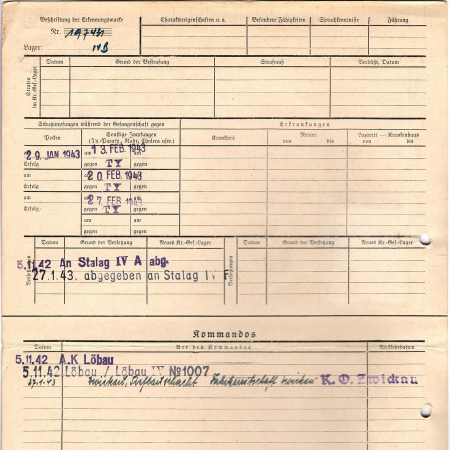 Beschriftung der Erkennungsmarke
Nr. 197431
Lager: IV B
Charaktereigenschaften u. a.
Besondere Fähigkeiten
Sprachkenntnisse
Führung
Strafen im Kr.-Gef.-Lager
Datum
Grund der Bestrafung
Strafmaß
Verbüßt, Datum
Schutzimpfungen während der Gefangenschaft gegen
Pocken
Sonstige Impfungen (Ty.-Paraty., Ruhr, Cholera usw.)
am 29. JAN 1943
Erfolg
am 13. FEB. 1943
gegen TY
am
Erfolg
am 20 FEB 1943
gegen TY
am
Erfolg
am 27 FEB 1943
gegen TY
am
gegen
am
gegen
Erkrankungen
Krankheit
Revier
von
bis
Lazarett — Krankenhaus
von
bis
Versetzungen
Datum
Grund der Versetzung
Neues Kr.-Gef.-Lager
Versetzungen
Datum
Grund der Versetzung
Neues Kr.-Gef.-Lager
5.11.42 An Stalag IV A abg.
27.1.43. abgegeben an Stalag IV F
Kommandos
Datum
Art des Kommandos
Rückkehrdatum
5.11.42 A.K Löbau
5.11.42 Löbau / Löbau IV No 1007
27.1.43 Zwickau K. O. Zwickau